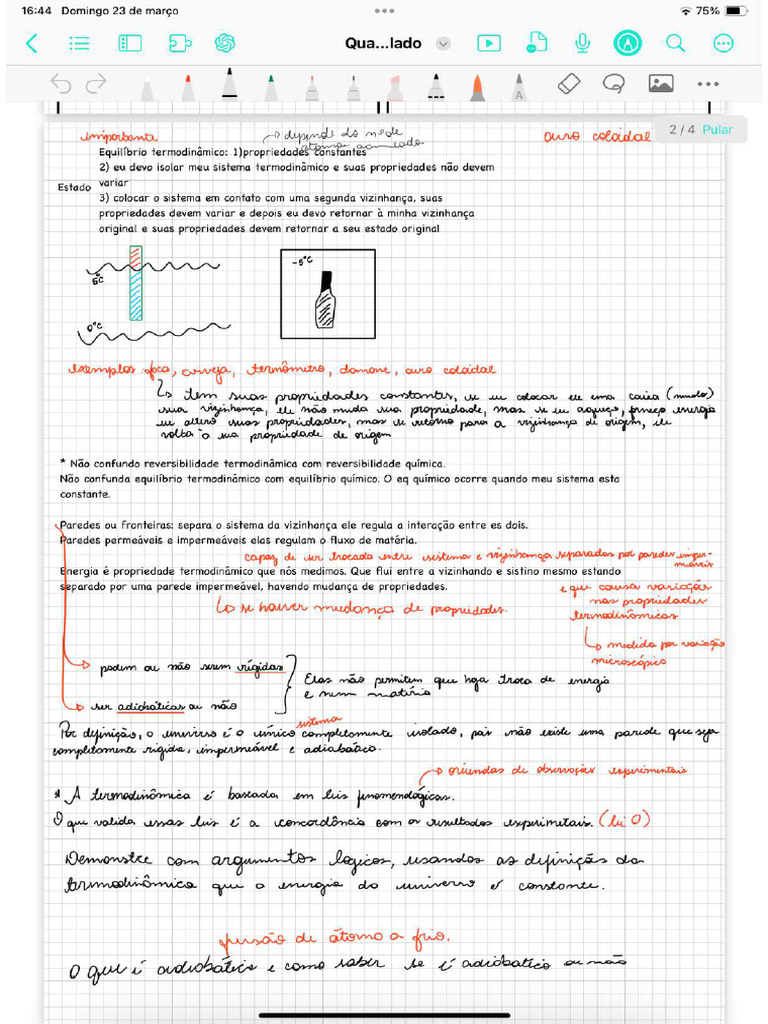 16:44 Domingo 23 de março
75%
Qua...lado
2 / 4 Pular
importante
depende do nº de
ouro coloidal
Equilíbrio termodinâmico: 1)propriedades constantes
2) eu devo isolar meu sistema termodinâmico e suas propriedades não devem
variar
Estado
3) colocar o sistema em contato com uma segunda vizinhança, suas
propriedades devem variar e depois eu devo retornar à minha vizinhança
original e suas propriedades devem retornar a seu estado original
-5°C
5°C
0°C
exemplos: foca, cerveja, termômetro, danone, ouro coloidal
tem suas propriedades constantes, se eu colocar eu uma caixa (mudo)
sua vizinhança, ele não muda sua propriedade, mas se eu aqueço, forneço energia
eu altero suas propriedades, mas se retorno para a vizinhança de origem, ele
volta a sua propriedade de origem
* Não confundo reversibilidade termodinâmica com reversibilidade química.
Não confunda equilíbrio termodinâmico com equilíbrio químico. O eq químico ocorre quando meu sistema esta
constante.
Paredes ou fronteiras: separa o sistema da vizinhança ele regula a interação entre es dois.
Paredes permeáveis e impermeáveis elas regulam o fluxo de matária.
capaz de ser trocada entre sistema e vizinhança separados por paredes imper-
meáveis
Energia é propriedade termodinâmico que nós medimos. Que flui entre a vizinhando e sistino mesmo estando
separado por uma parede impermeável, havendo mudança de propriedades.
e que causa variação
nas propriedades
termodinâmicas
se houver mudança de propriedades.
medida por variação
microscópico
podem ou não serem rígidas
ser adiabáticas ou não
Elas não permitem que haja troca de energia
e nem matéria
sistema
Por definição, o universo é o único completamente isolado, pois não existe uma parede que seja
completamente rígida, impermeável e adiabático.
oriundas de observações experimentais
* A termodinâmica é baseada em leis fenomenológicas.
O que valida essas leis é a concordância com os resultados experimetais. (lei 0)
Demonstre com argumentos logicos, usandos as definição da
termodinâmica que a energia do universo é constante.
fusão de átomo a frio.
O que é adiabático e como saber se é adiabatico ou não